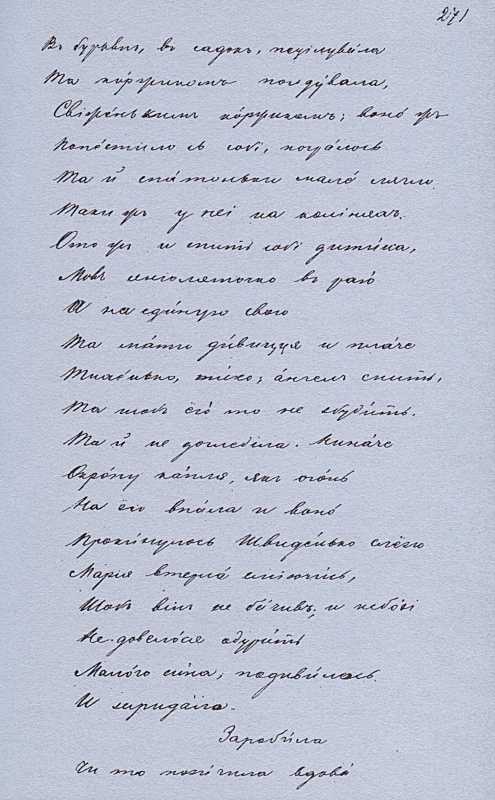 271
Въ бурьянъ, въ садокъ, поцілувала
Та коржикомъ погодувала,
Свіженькимъ коржикомъ; воно жъ
Попестило съ собі, погралось
Та й спатоньки мало лягло
Таки жъ у неі на колінахъ.
Ото жъ и спить собі дитина,
Мовъ янголяточко въ раю
И на едыную свою
Та мати дивицця и плаче
Тихенько, тихо; ангелъ спить,
Та щобъ ёго то не збудить.
Та й не догледіла. Ниначе
Окропу капля, якъ огонь
На ёго впала и воно
Прокинулось Швиденько слёзи
Марія втерла сміючись,
Щобъ вінъ не бачивъ, и небозі
Не довелося одурить
Малого сина; подивилась
И заридала.
Заробила
Чи то позичила вдова